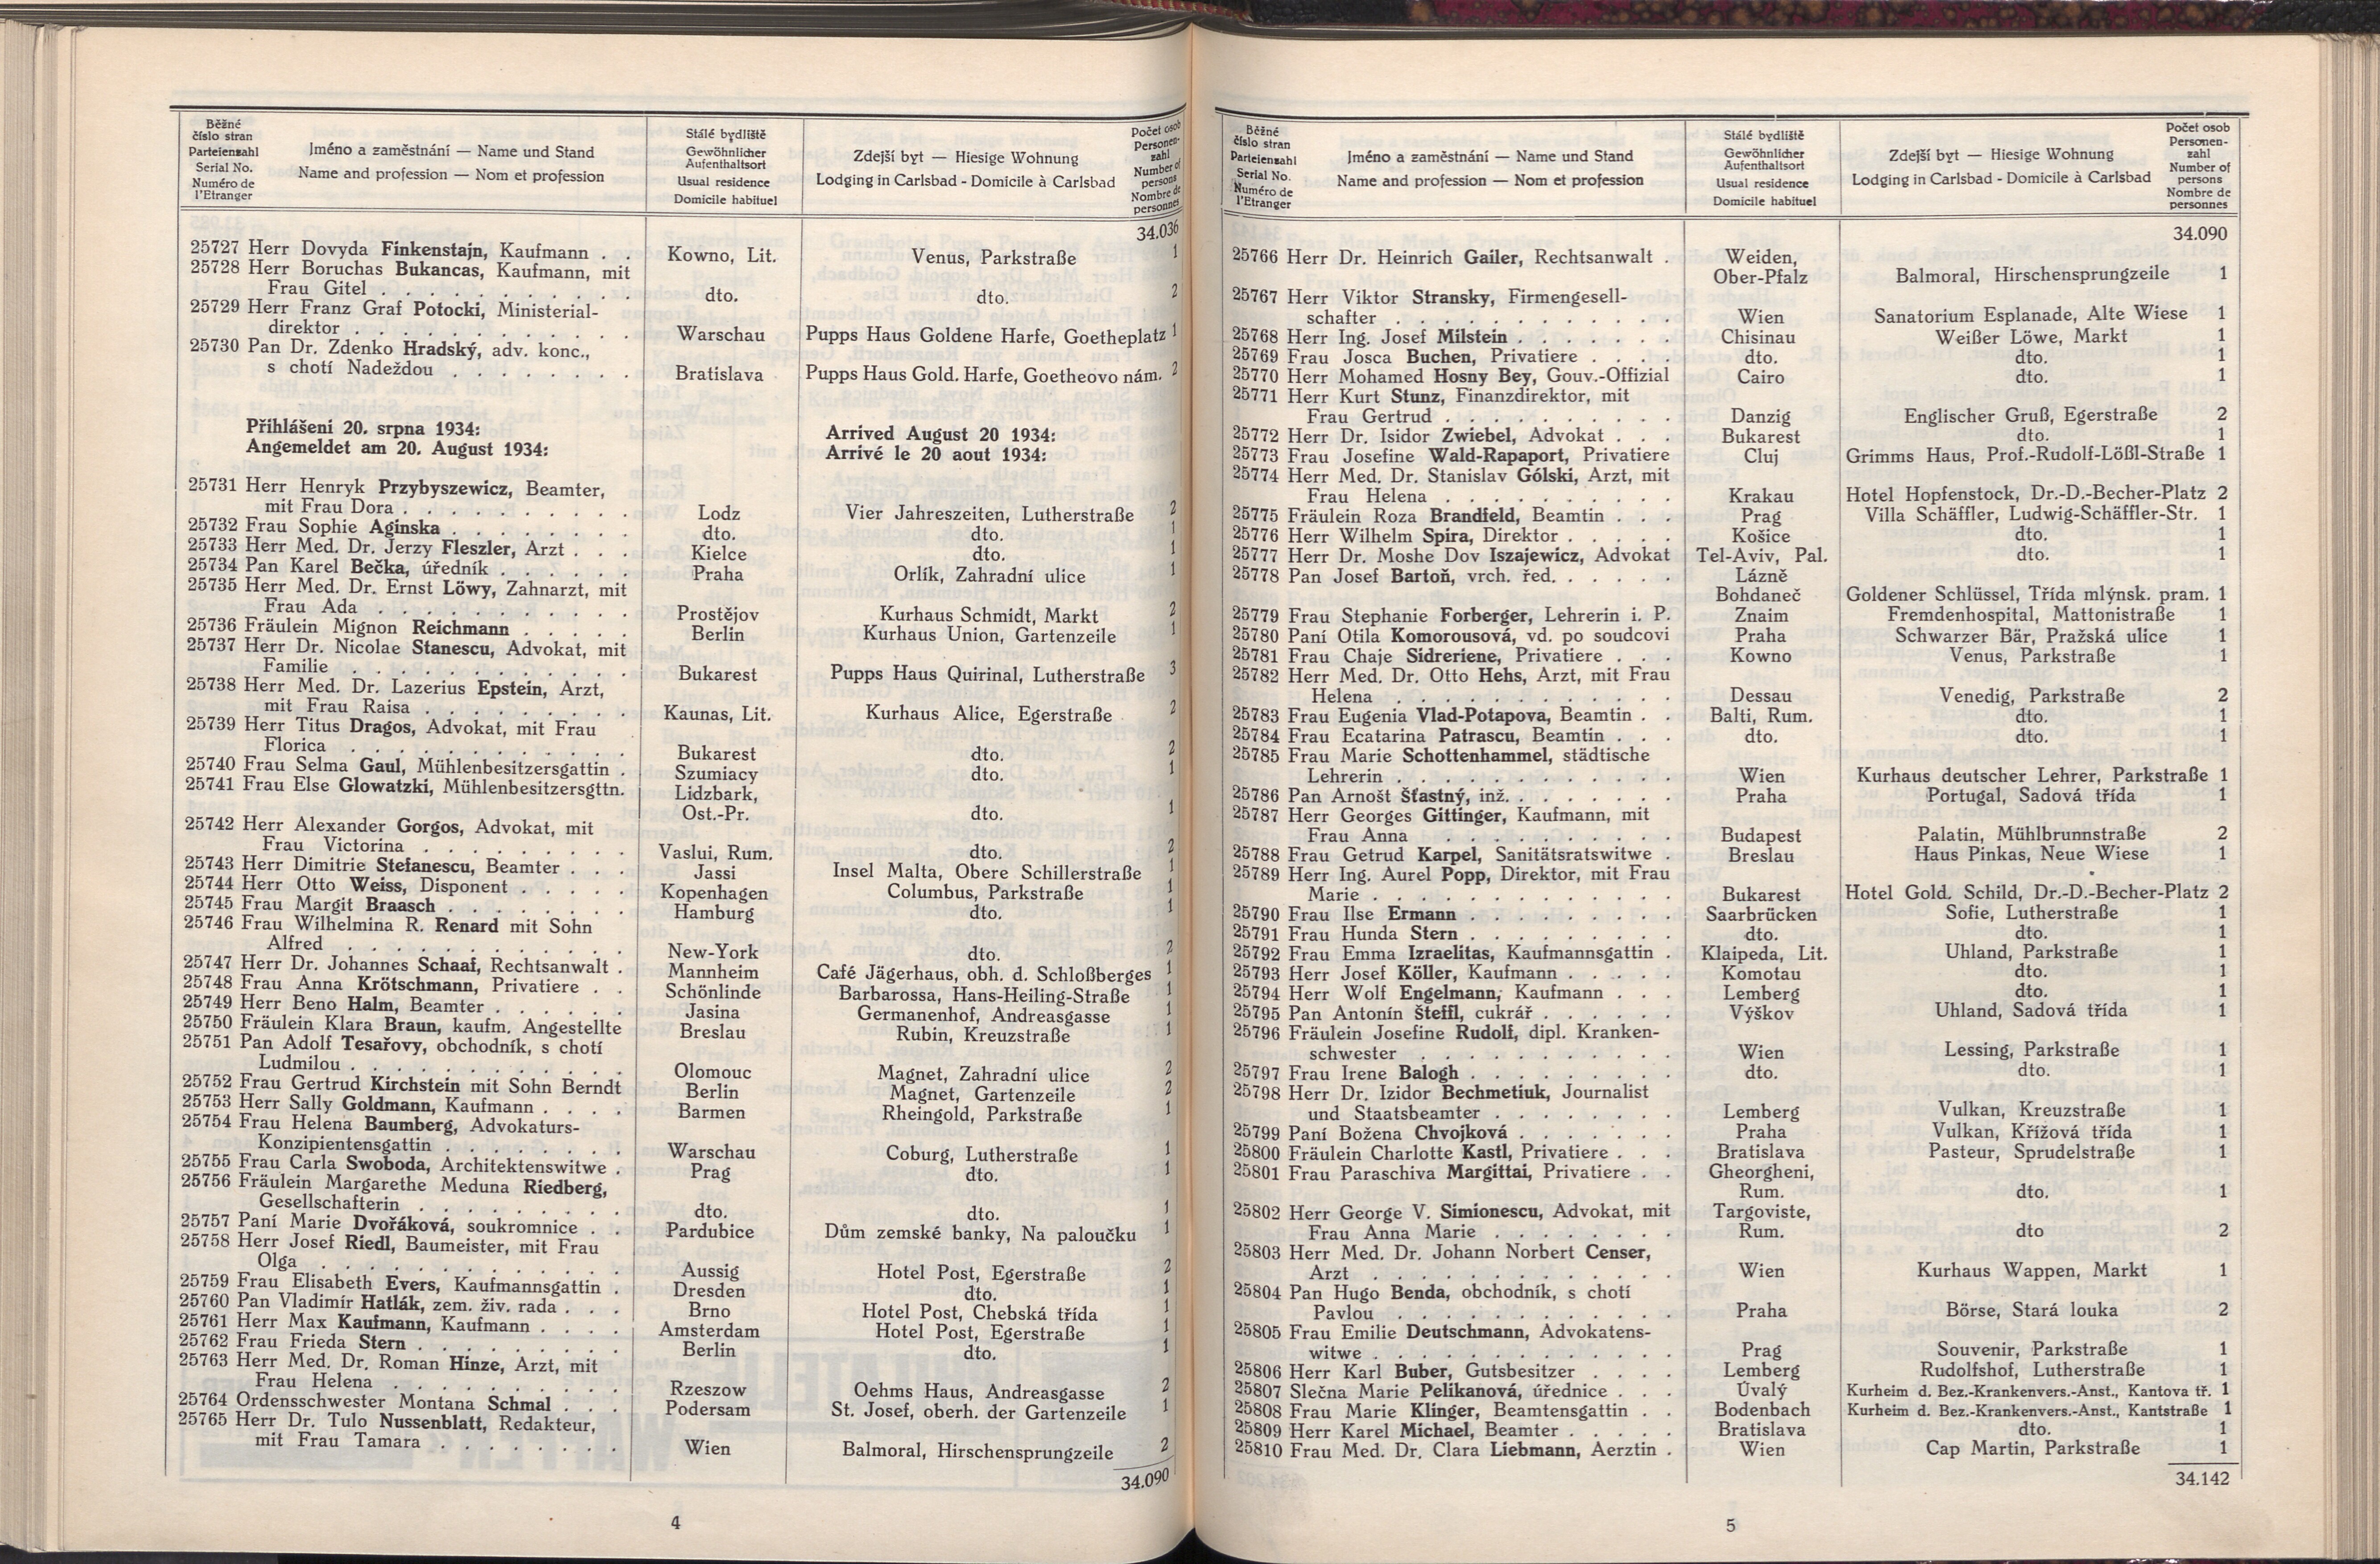 Běžné číslo stran
Parteienzahl
Serial No.
Numéro de l'Etranger
Jméno a zaměstnání — Name und Stand
Name and profession — Nom et profession
Stálé bydliště
Gewöhnlicher Aufenthaltsort
Usual residence
Domicile habituel
Zdejší byt — Hiesige Wohnung
Lodging in Carlsbad - Domicile à Carlsbad
Počet osob
Personenzahl
Number of persons
Nombre de personnes
34.036
25727 Herr Dovyda Finkenstajn, Kaufmann . . Kowno, Lit. Venus, Parkstraße 1
25728 Herr Boruchas Bukancas, Kaufmann, mit
Frau Gitel . . . dto. dto. 2
25729 Herr Franz Graf Potocki, Ministerial-
direktor . . . Warschau Pupps Haus Goldene Harfe, Goetheplatz 1
25730 Pan Dr. Zdenko Hradský, adv. konc.,
s chotí Nadeždou . . . Bratislava Pupps Haus Gold. Harfe, Goetheovo nám. 2
Přihlášeni 20. srpna 1934: Arrived August 20 1934:
Angemeldet am 20. August 1934: Arrivé le 20 aout 1934:
25731 Herr Henryk Przybyszewicz, Beamter,
mit Frau Dora . . . Lodz Vier Jahreszeiten, Lutherstraße 2
25732 Frau Sophie Aginska . . . dto. dto. 1
25733 Herr Med. Dr. Jerzy Fleszler, Arzt . . . Kielce dto. 1
25734 Pan Karel Bečka, úředník . . . Praha Orlík, Zahradní ulice 1
25735 Herr Med. Dr. Ernst Löwy, Zahnarzt, mit
Frau Ada . . . Prostějov Kurhaus Schmidt, Markt 2
25736 Fräulein Mignon Reichmann . . . Berlin Kurhaus Union, Gartenzeile 1
25737 Herr Dr. Nicolae Stanescu, Advokat, mit
Familie . . . Bukarest Pupps Haus Quirinal, Lutherstraße 3
25738 Herr Med. Dr. Lazerius Epstein, Arzt,
mit Frau Raisa . . . Kaunas, Lit. Kurhaus Alice, Egerstraße 2
25739 Herr Titus Dragos, Advokat, mit Frau
Florica . . . Bukarest dto. 2
25740 Frau Selma Gaul, Mühlenbesitzersgattin . Szumiacy dto. 1
25741 Frau Else Glowatzki, Mühlenbesitzersgttn. Lidzbark,
Ost.-Pr. dto. 1
25742 Herr Alexander Gorgos, Advokat, mit
Frau Victorina . . . Vaslui, Rum. dto. 2
25743 Herr Dimitrie Stefanescu, Beamter . . . Jassi Insel Malta, Obere Schillerstraße 1
25744 Herr Otto Weiss, Disponent . . . Kopenhagen Columbus, Parkstraße 1
25745 Frau Margit Braasch . . . Hamburg dto. 1
25746 Frau Wilhelmina R. Renard mit Sohn
Alfred . . . New-York dto. 2
25747 Herr Dr. Johannes Schaaf, Rechtsanwalt . Mannheim Café Jägerhaus, obh. d. Schloßberges 1
25748 Frau Anna Krötschmann, Privatiere . . Schönlinde Barbarossa, Hans-Heiling-Straße 1
25749 Herr Beno Halm, Beamter . . . Jasina Germanenhof, Andreasgasse 1
25750 Fräulein Klara Braun, kaufm. Angestellte Breslau Rubin, Kreuzstraße 1
25751 Pan Adolf Tesařovy, obchodník, s chotí
Ludmilou . . . Olomouc Magnet, Zahradní ulice 2
25752 Frau Gertrud Kirchstein mit Sohn Berndt Berlin Magnet, Gartenzeile 2
25753 Herr Sally Goldmann, Kaufmann . . . Barmen Rheingold, Parkstraße 1
25754 Frau Helena Baumberg, Advokaturs-
Konzipientensgattin . . . Warschau Coburg, Lutherstraße 1
25755 Frau Carla Swoboda, Architektenswitwe . Prag dto. 1
25756 Fräulein Margarethe Meduna Riedberg,
Gesellschafterin . . . dto. dto. 1
25757 Paní Marie Dvořáková, soukromnice . . Pardubice Dům zemské banky, Na paloučku 1
25758 Herr Josef Riedl, Baumeister, mit Frau
Olga . . . Aussig Hotel Post, Egerstraße 2
25759 Frau Elisabeth Evers, Kaufmannsgattin . Dresden dto. 1
25760 Pan Vladimír Hatlák, zem. živ. rada . . . Brno Hotel Post, Chebská třída 1
25761 Herr Max Kaufmann, Kaufmann . . . Amsterdam Hotel Post, Egerstraße 1
25762 Frau Frieda Stern . . . Berlin dto. 1
25763 Herr Med. Dr. Roman Hinze, Arzt, mit
Frau Helena . . . Rzeszow Oehms Haus, Andreasgasse 2
25764 Ordensschwester Montana Schmal . . . Podersam St. Josef, oberh. der Gartenzeile 1
25765 Herr Dr. Tulo Nussenblatt, Redakteur,
mit Frau Tamara . . . Wien Balmoral, Hirschensprungzeile 2
34.090
4
Běžné číslo stran
Parteienzahl
Serial No.
Numéro de l'Etranger
Jméno a zaměstnání — Name und Stand
Name and profession — Nom et profession
Stálé bydliště
Gewöhnlicher Aufenthaltsort
Usual residence
Domicile habituel
Zdejší byt — Hiesige Wohnung
Lodging in Carlsbad - Domicile à Carlsbad
Počet osob
Personen-
zahl
Number of persons
Nombre de personnes
34.090
25766 Herr Dr. Heinrich Gailer, Rechtsanwalt . Weiden,
Ober-Pfalz Balmoral, Hirschensprungzeile 1
25767 Herr Viktor Stransky, Firmengesell-
schafter . . . Wien Sanatorium Esplanade, Alte Wiese 1
25768 Herr Ing. Josef Milstein . . . Chisinau Weißer Löwe, Markt 1
25769 Frau Josca Buchen, Privatiere . . . dto. dto. 1
25770 Herr Mohamed Hosny Bey, Gouv.-Offizial Cairo dto. 1
25771 Herr Kurt Stunz, Finanzdirektor, mit
Frau Gertrud . . . Danzig Englischer Gruß, Egerstraße 2
25772 Herr Dr. Isidor Zwiebel, Advokat . . . Bukarest dto. 1
25773 Frau Josefine Wald-Rapaport, Privatiere Cluj Grimms Haus, Prof.-Rudolf-Lößl-Straße 1
25774 Herr Med. Dr. Stanislav Gólski, Arzt, mit
Frau Helena . . . Krakau Hotel Hopfenstock, Dr.-D.-Becher-Platz 2
25775 Fräulein Roza Brandfeld, Beamtin . . . Prag Villa Schäffler, Ludwig-Schäffler-Str. 1
25776 Herr Wilhelm Spira, Direktor . . . Košice dto. 1
25777 Herr Dr. Moshe Dov Iszajewicz, Advokat Tel-Aviv, Pal. dto. 1
25778 Pan Josef Bartoň, vrch. řed. . . . Lázně
Bohdaneč Goldener Schlüssel, Třída mlýnsk. pram. 1
25779 Frau Stephanie Forberger, Lehrerin i. P. Znaim Fremdenhospital, Mattonistraße 1
25780 Paní Otila Komorousová, vd. po soudcovi Praha Schwarzer Bär, Pražská ulice 1
25781 Frau Chaje Sidreriene, Privatiere . . . Kowno Venus, Parkstraße 1
25782 Herr Med. Dr. Otto Hehs, Arzt, mit Frau
Helena . . . Dessau Venedig, Parkstraße 2
25783 Frau Eugenia Vlad-Potapova, Beamtin . . Balti, Rum. dto. 1
25784 Frau Ecatarina Patrascu, Beamtin . . . dto. dto. 1
25785 Frau Marie Schottenhammel, städtische
Lehrerin . . . Wien Kurhaus deutscher Lehrer, Parkstraße 1
25786 Pan Arnošt Šťastný, inž. . . . Praha Portugal, Sadová třída 1
25787 Herr Georges Gittinger, Kaufmann, mit
Frau Anna . . . Budapest Palatin, Mühlbrunnstraße 2
25788 Frau Getrud Karpel, Sanitätsratswitwe . Breslau Haus Pinkas, Neue Wiese 1
25789 Herr Ing. Aurel Popp, Direktor, mit Frau
Marie . . . Bukarest Hotel Gold. Schild, Dr.-D.-Becher-Platz 2
25790 Frau Ilse Ermann . . . Saarbrücken Sofie, Lutherstraße 1
25791 Frau Hunda Stern . . . dto. dto. 1
25792 Frau Emma Izraelitas, Kaufmannsgattin . Klaipeda, Lit. Uhland, Parkstraße 1
25793 Herr Josef Köller, Kaufmann . . . Komotau dto. 1
25794 Herr Wolf Engelmann, Kaufmann . . . Lemberg dto. 1
25795 Pan Antonín Šteffl, cukrář . . . Výškov Uhland, Sadová třída 1
25796 Fräulein Josefine Rudolf, dipl. Kranken-
schwester . . . Wien Lessing, Parkstraße 1
25797 Frau Irene Balogh . . . dto. dto. 1
25798 Herr Dr. Izidor Bechmetiuk, Journalist
und Staatsbeamter . . . Lemberg Vulkan, Kreuzstraße 1
25799 Paní Božena Chvojková . . . Praha Vulkan, Křížová třída 1
25800 Fräulein Charlotte Kastl, Privatiere . . . Bratislava Pasteur, Sprudelstraße 1
25801 Frau Paraschiva Margittai, Privatiere . . Gheorgheni,
Rum. dto. 1
25802 Herr George V. Simionescu, Advokat, mit Targoviste,
Frau Anna Marie . . . Rum. dto 2
25803 Herr Med. Dr. Johann Norbert Censer,
Arzt . . . Wien Kurhaus Wappen, Markt 1
25804 Pan Hugo Benda, obchodník, s chotí
Pavlou . . . Praha Börse, Stará louka 2
25805 Frau Emilie Deutschmann, Advokatens-
witwe . . . Prag Souvenir, Parkstraße 1
25806 Herr Karl Buber, Gutsbesitzer . . . Lemberg Rudolfshof, Lutherstraße 1
25807 Slečna Marie Pelikanová, úřednice . . . Úvalý Kurheim d. Bez.-Krankenvers.-Anst., Kantova tř. 1
25808 Frau Marie Klinger, Beamtensgattin . . Bodenbach Kurheim d. Bez.-Krankenvers.-Anst., Kantstraße 1
25809 Herr Karel Michael, Beamter . . . Bratislava dto. 1
25810 Frau Med. Dr. Clara Liebmann, Aerztin . Wien Cap Martin, Parkstraße 1
34.142
5